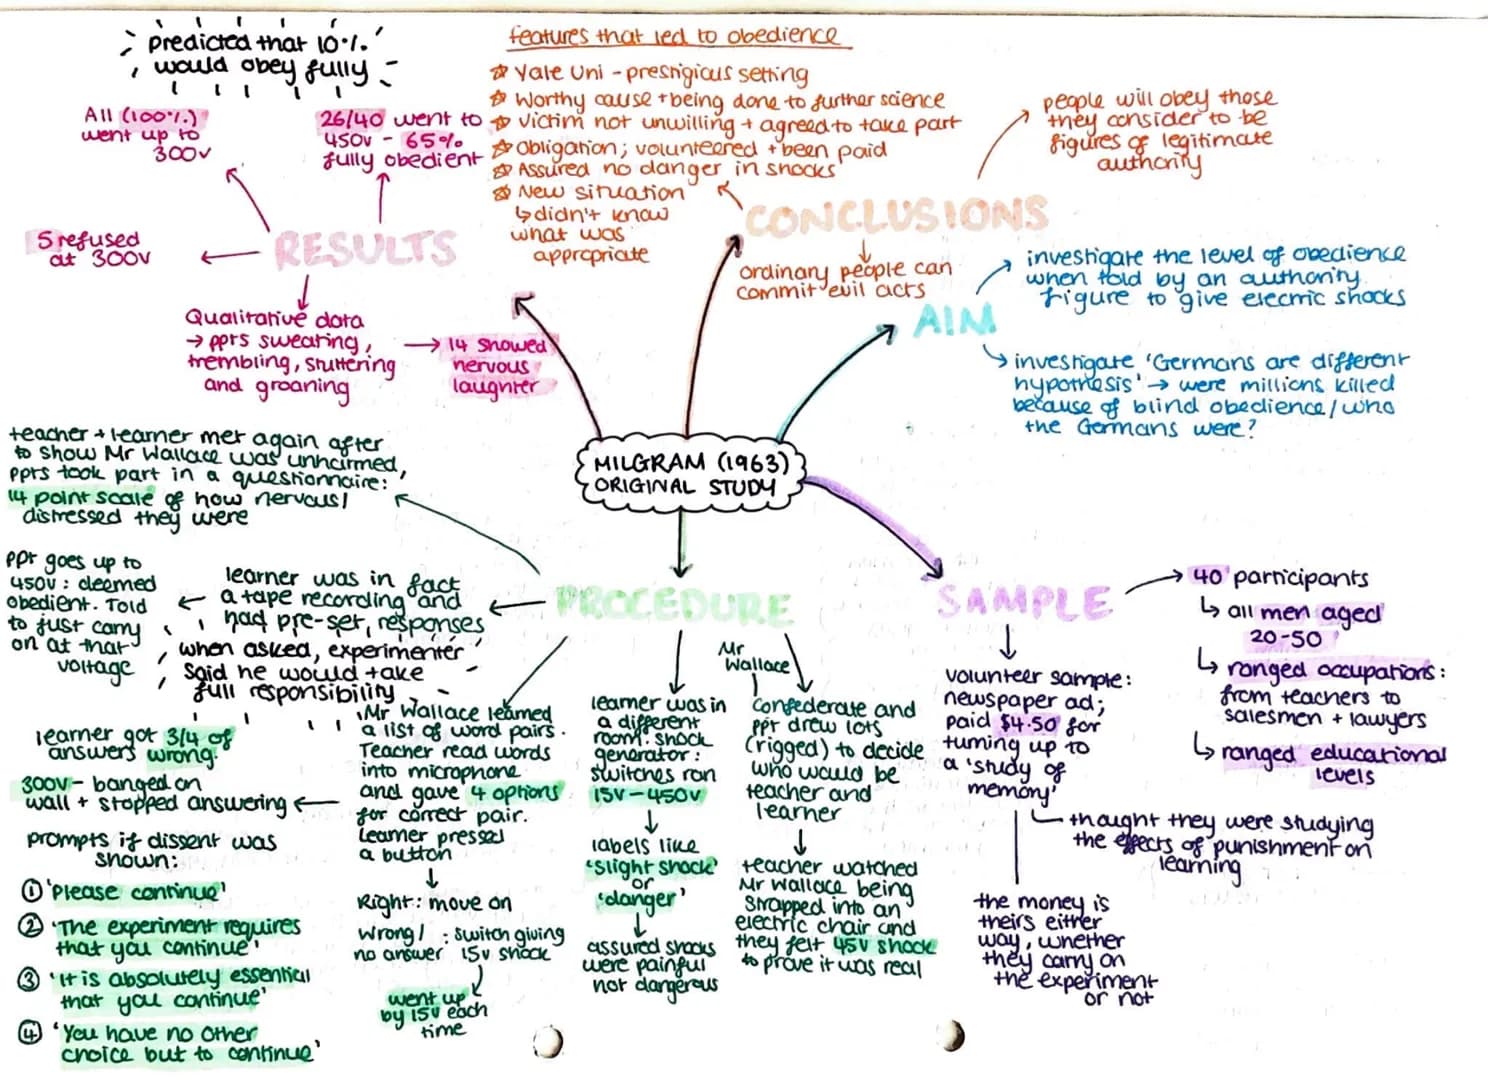 predicted that 10%
would obey fully
All (100%)
went up to
300v
26/40 went to
450v - 65%
fully obedient
5 refused
at 300v
RESULTS
Qualitative data
→ ppts sweating,
trembling, stuttering
and groaning
→ 14 showed
nervous
laughter
features that led to obedience
☆ Yale Uni - prestigious setting
☆ Worthy cause + being done to further science
☆ Victim not unwilling + agreed to take part
☆ Obligation; volunteered + been paid
☆ Assured no danger in shocks
☆ New situation
↳ didn't know
what was
appropriate
CONCLUSIONS
people will obey those
they consider to be
figures of legitimate
authority
ordinary people can
commit evil acts
AIM
investigate the level of obedience
when told by an authority
figure to give electric shocks
investigate 'Germans are different
hypothesis' → were millions killed
because of blind obedience / who
the Germans were?
MILGRAM (1963)
ORIGINAL STUDY
teacher + learner met again after
to show Mr Wallace was unharmed,
ppts took part in a questionnaire:
14 point scale of how nervous/
distressed they were
PROCEDURE
learner was in fact
a tape recording and
had pre-set responses
ppt goes up to
450v: deemed
obedient. Told
to just carry
on at that
voltage
when asked, experimenter
said he would take
full responsibility
Mr Wallace learned
a list of word pairs.
Teacher read words
into microphone
and gave 4 options
for correct pair.
Learner pressed
a button
Right: move on
Wrong/ : switch giving
no answer 15v shock
went up
by 15v each
time
learner got 3/4 of
answers wrong.
300v - banged on
wall + stopped answering
prompts if dissent was
shown:
① 'Please continue'
② 'The experiment requires
that you continue'
③ 'It is absolutely essential
that you continue'
④ 'You have no other
choice but to continue'
learner was in
a different
room. shock
generator:
switches ran
15v-450v
labels like
'slight shock'
or
'danger'
assured shocks
were painful
not dangerous
Mr
Wallace
Confederate and
ppt drew lots
(rigged) to decide
who would be
teacher and
learner
teacher watched
Mr Wallace being
strapped into an
electric chair and
they felt 45v shock
to prove it was real
SAMPLE
40 participants
↳ all men aged
20-50
↳ ranged occupations:
from teachers to
salesmen + lawyers
↳ ranged educational
levels
volunteer sample:
newspaper ad;
paid $4.50 for
turning up to
a 'study of
memory'
thought they were studying
the effects of punishment on
learning
the money is
theirs either
way, whether
they carry on
the experiment
or not